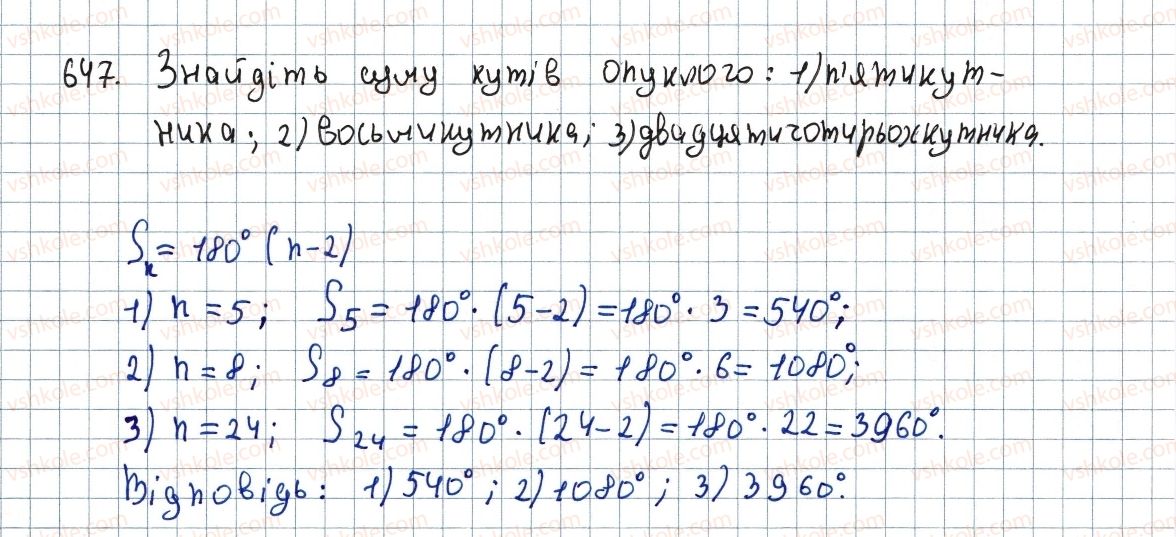 647. Знайдіть суму кутів опуклого: 1) п'ятикут-
ника; 2) восьмикутника; 3) двадцятичотирьохкутника.
Sₙ = 180° (n-2)
1) n = 5; S₅ = 180° · (5-2) = 180° · 3 = 540°;
2) n = 8; S₈ = 180° · (8-2) = 180° · 6 = 1080°;
3) n = 24; S₂₄ = 180° · (24-2) = 180° · 22 = 3960°.
Відповідь: 1) 540°; 2) 1080°; 3) 3960°.